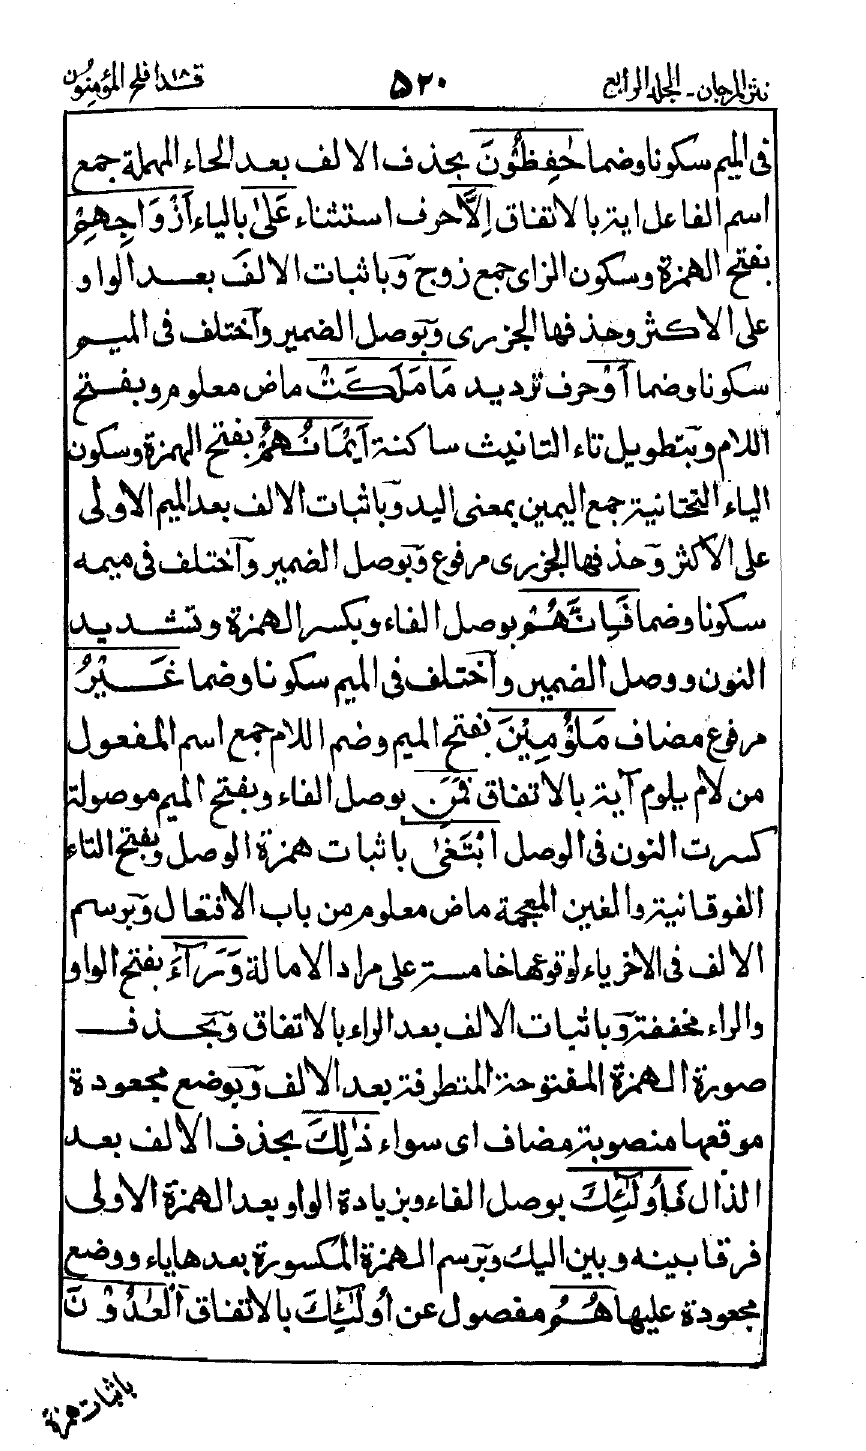 نثر المرجان - الجلد الرابع
٥٢٠
قد افلح المؤمنون ١٨
فى الميم سكونا وضما حٰفِظُوْنَ بحذف الالف بعد الحاء المهملة جمع
اسم الفاعل اية بالاتفاق اِلَّا حرف استثناء عَلٰى بالياء اَزْوَاجِهِمْ
بفتح الهمزة وسكون الزاى جمع زوج وَبا ثبات الالف بعد الواو
على الاكثر وحذفها الجزرى وَبوصل الضمير وآختلف فى الميم
سكونا وضما اَوْ حرف ترديد مَا مَلَكَتْ ماض معلوم وبفتح
اللام وبتطويل تاء التانيث ساكنة اَيْمَانُهُمْ بفتح الهمزة وسكون
الياء التحتانية جمع اليمين بمعنى اليد وَباثبات الالف بعد الميم الاولى
على الاكثر وَحذفها الجزرى مرفوع وَبوصل الضمير وآختلف فى ميمه
سكونا وضما فَاِنَّهُمْ بوصل الفاء وبكسر الهمزة وتشديد
النون ووصل الضمير وآختلف فى الميم سكونا وضما غَيْرُ
مرفوع مضاف مَلُوْمِيْنَ بفتح الميم وضم اللام جمع اسم المفعول
من لام يلوم آية بالاتفاق فَمَنِ بوصل الفاء وبفتح الميم موصولة
كسرت النون فى الوصل ابْتَغٰى باثبات همزة الوصل وبفتح التاء
الفوقانية والغين المعجمة ماض معلوم من باب الافتعال وَبرسم
الالف فى الاخر ياء لوقوعها خامسة على مراد الامالة وَرَآءَ بفتح الواو
والراء مخففة وَباثبات الالف بعد الراء بالاتفاق وَبحذف
صورة الهمزة المفتوحة المتطرفة بعد الالف وَبوضع مجعودة
موقعها منصوبة مضاف اى سواء ذٰلِكَ بحذف الالف بعد
الذال فَاُولٰٓئِكَ بوصل الفاء وبزيادة الواو بعد الهمزة الاولى
فرقا بينه وبين اليك وَبرسم الهمزة المكسورة بعدها ياء ووضع
مجعودة عليها هُمُ مفصول عن اُولٰٓئِكَ بالاتفاق الْعٰدُوْنَ
باثبات همزة